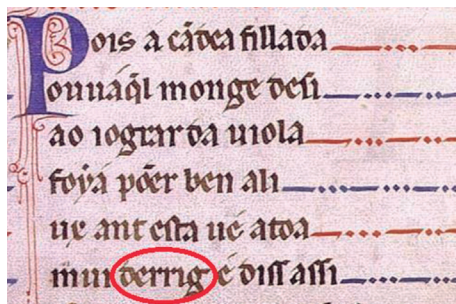 Pois a cãdea fillada
ouuáq̃l monge desi
ao iograr da uiola
foýa põer ben ali
ux ant esta ué atoa
mui derrig é diss assi